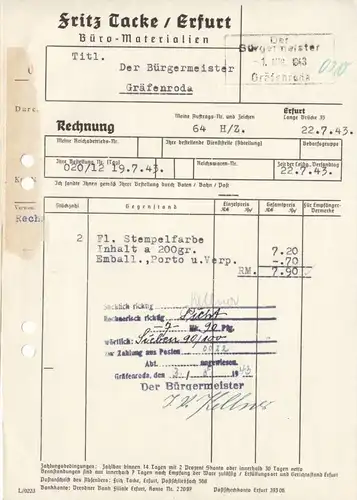 Fritz Tacke / Erfurt
Büro-Materialien
Titl.
Der Bürgermeister
Gräfenroda
Der
Bürgermeister
1943
Gräfenroda
Meine Auftrags-Nr. und Zeichen
Erfurt
Lange Brücke 35
Rechnung
64 H/Z.
22.7.43.
Meine Reichsbetriebs-Nr.
Ihre bestellende Dienststelle (Abteilung)
Bedarfsgruppe
Ihre Bestellung Nr. (Tag)
Reichswaren-Nr.
020/12 19.7.43.
22.7.43.
Ich sandte Ihnen gemäß Ihrer Bestellung durch Boten / Bahn / Post
Stückzahl
Gegenstand
Einzelpreis
Gesamtpreis
für Empfänger-
Vermerke
Rech
2
Fl. Stempelfarbe
Inhalt a 200gr.
7.20
Emball.,Porto u.Verp.
-.70
RM.
7.90
Kellner
Sachlich richtig
Rechnerisch richtig
7
Mk. 90 Pfg.
wörtlich: Sieben 90/100
zur Zahlung aus Posten
0022
Abt.
angewiesen.
Gräfenroda, den
Der Bürgermeister
Kellner
Zahlungsbedingungen: Zahlbar binnen 14 Tagen mit 2 Prozent Skonto oder innerhalb 30 Tagen netto
Beanstandungen sind nur innerhalb 7 Tagen nach Empfang der Ware zulässig / Erfüllungsort und Gerichtsstand Erfurt
Postanschrift des Absenders: Fritz Tacke, Erfurt, Postschließfach 308
Bankkonto: Dresdner Bank Filiale Erfurt, Konto Nr. 22097
Postscheckkonto Erfurt 393 08
L/0223